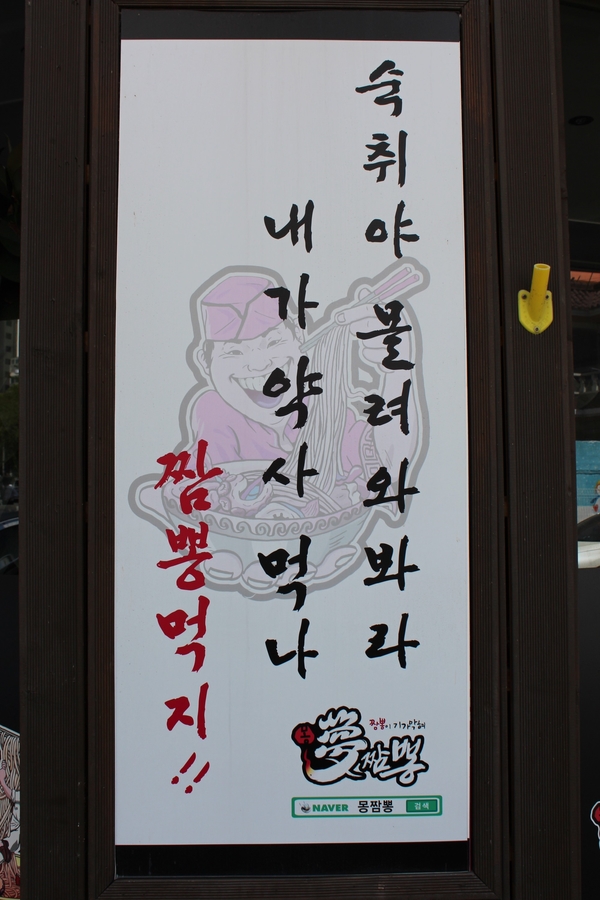 숙취야 몰려와봐라
내가 약사먹나
짬뽕먹지!!
짬뽕이 기가막혀
몽
夢짬뽕
NAVER 몽짬뽕 검색